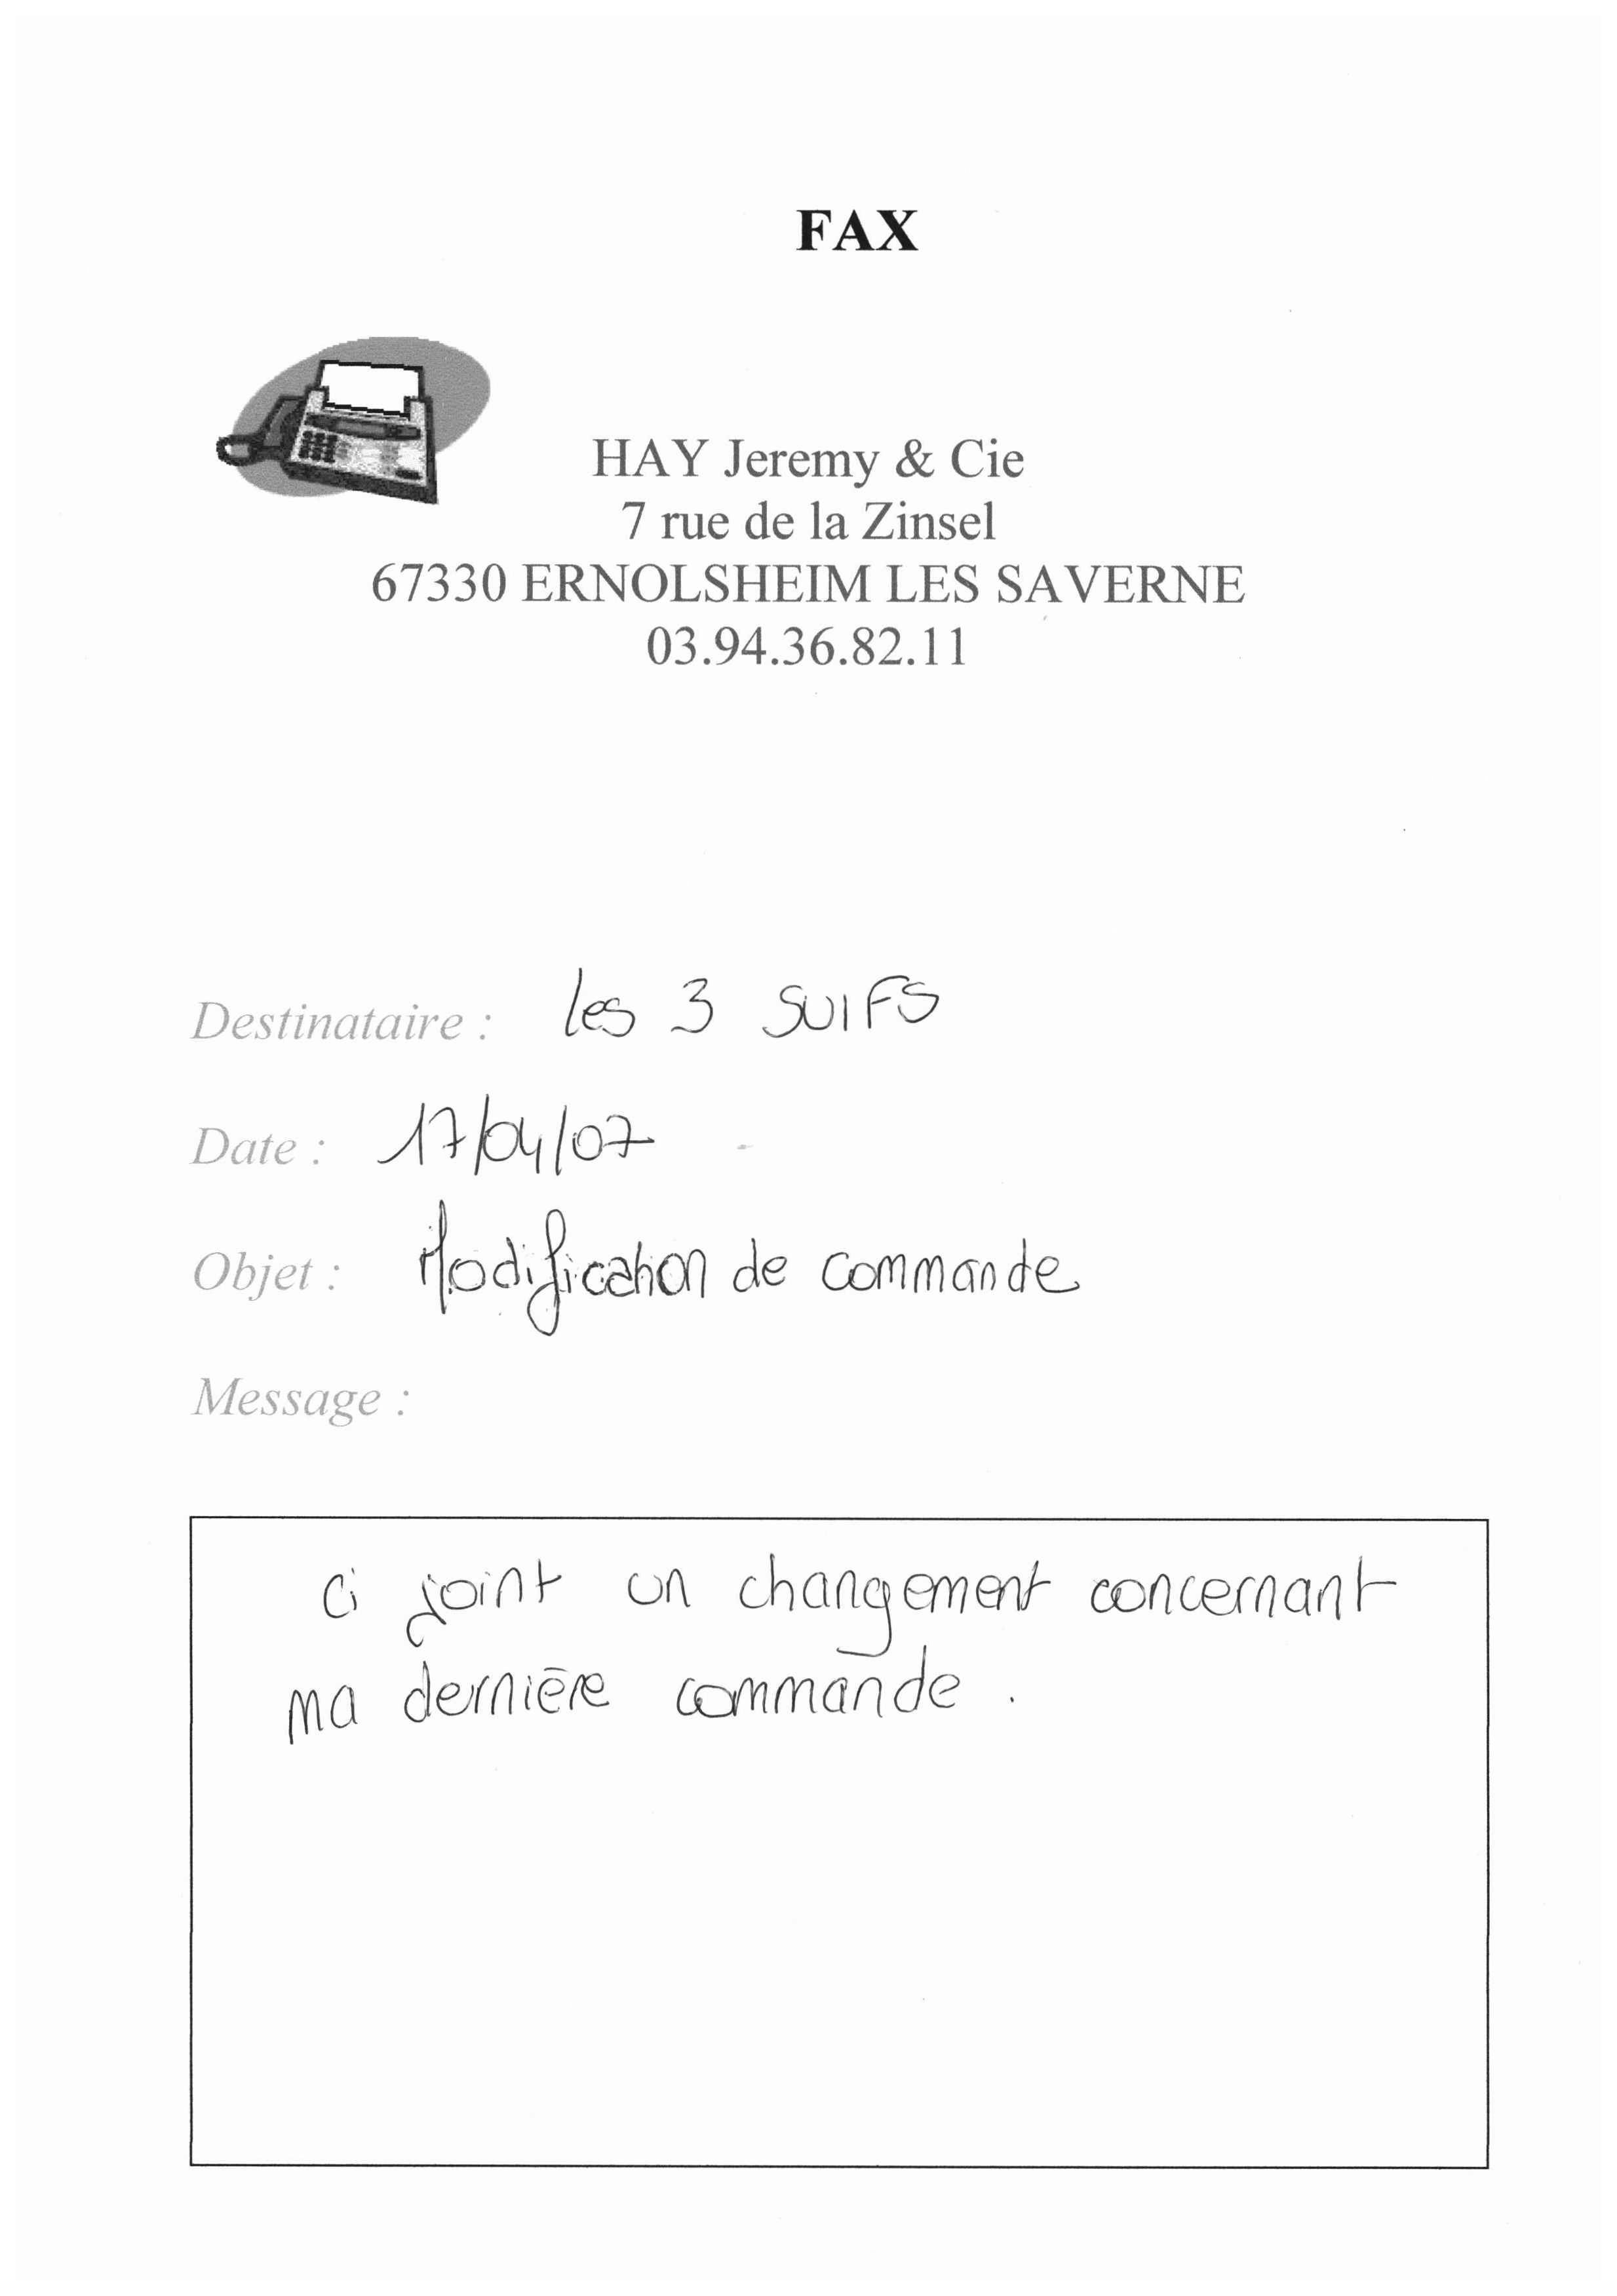 FAX
HAY Jeremy & Cie
7 rue de la Zinsel
67330 ERNOLSHEIM LES SAVERNE
03.94.36.82.11
Destinataire : les 3 SUIFS
Date : 17/04/07
Objet : Modification de commande
Message :
Ci joint un changement concernant
ma dernière commande .